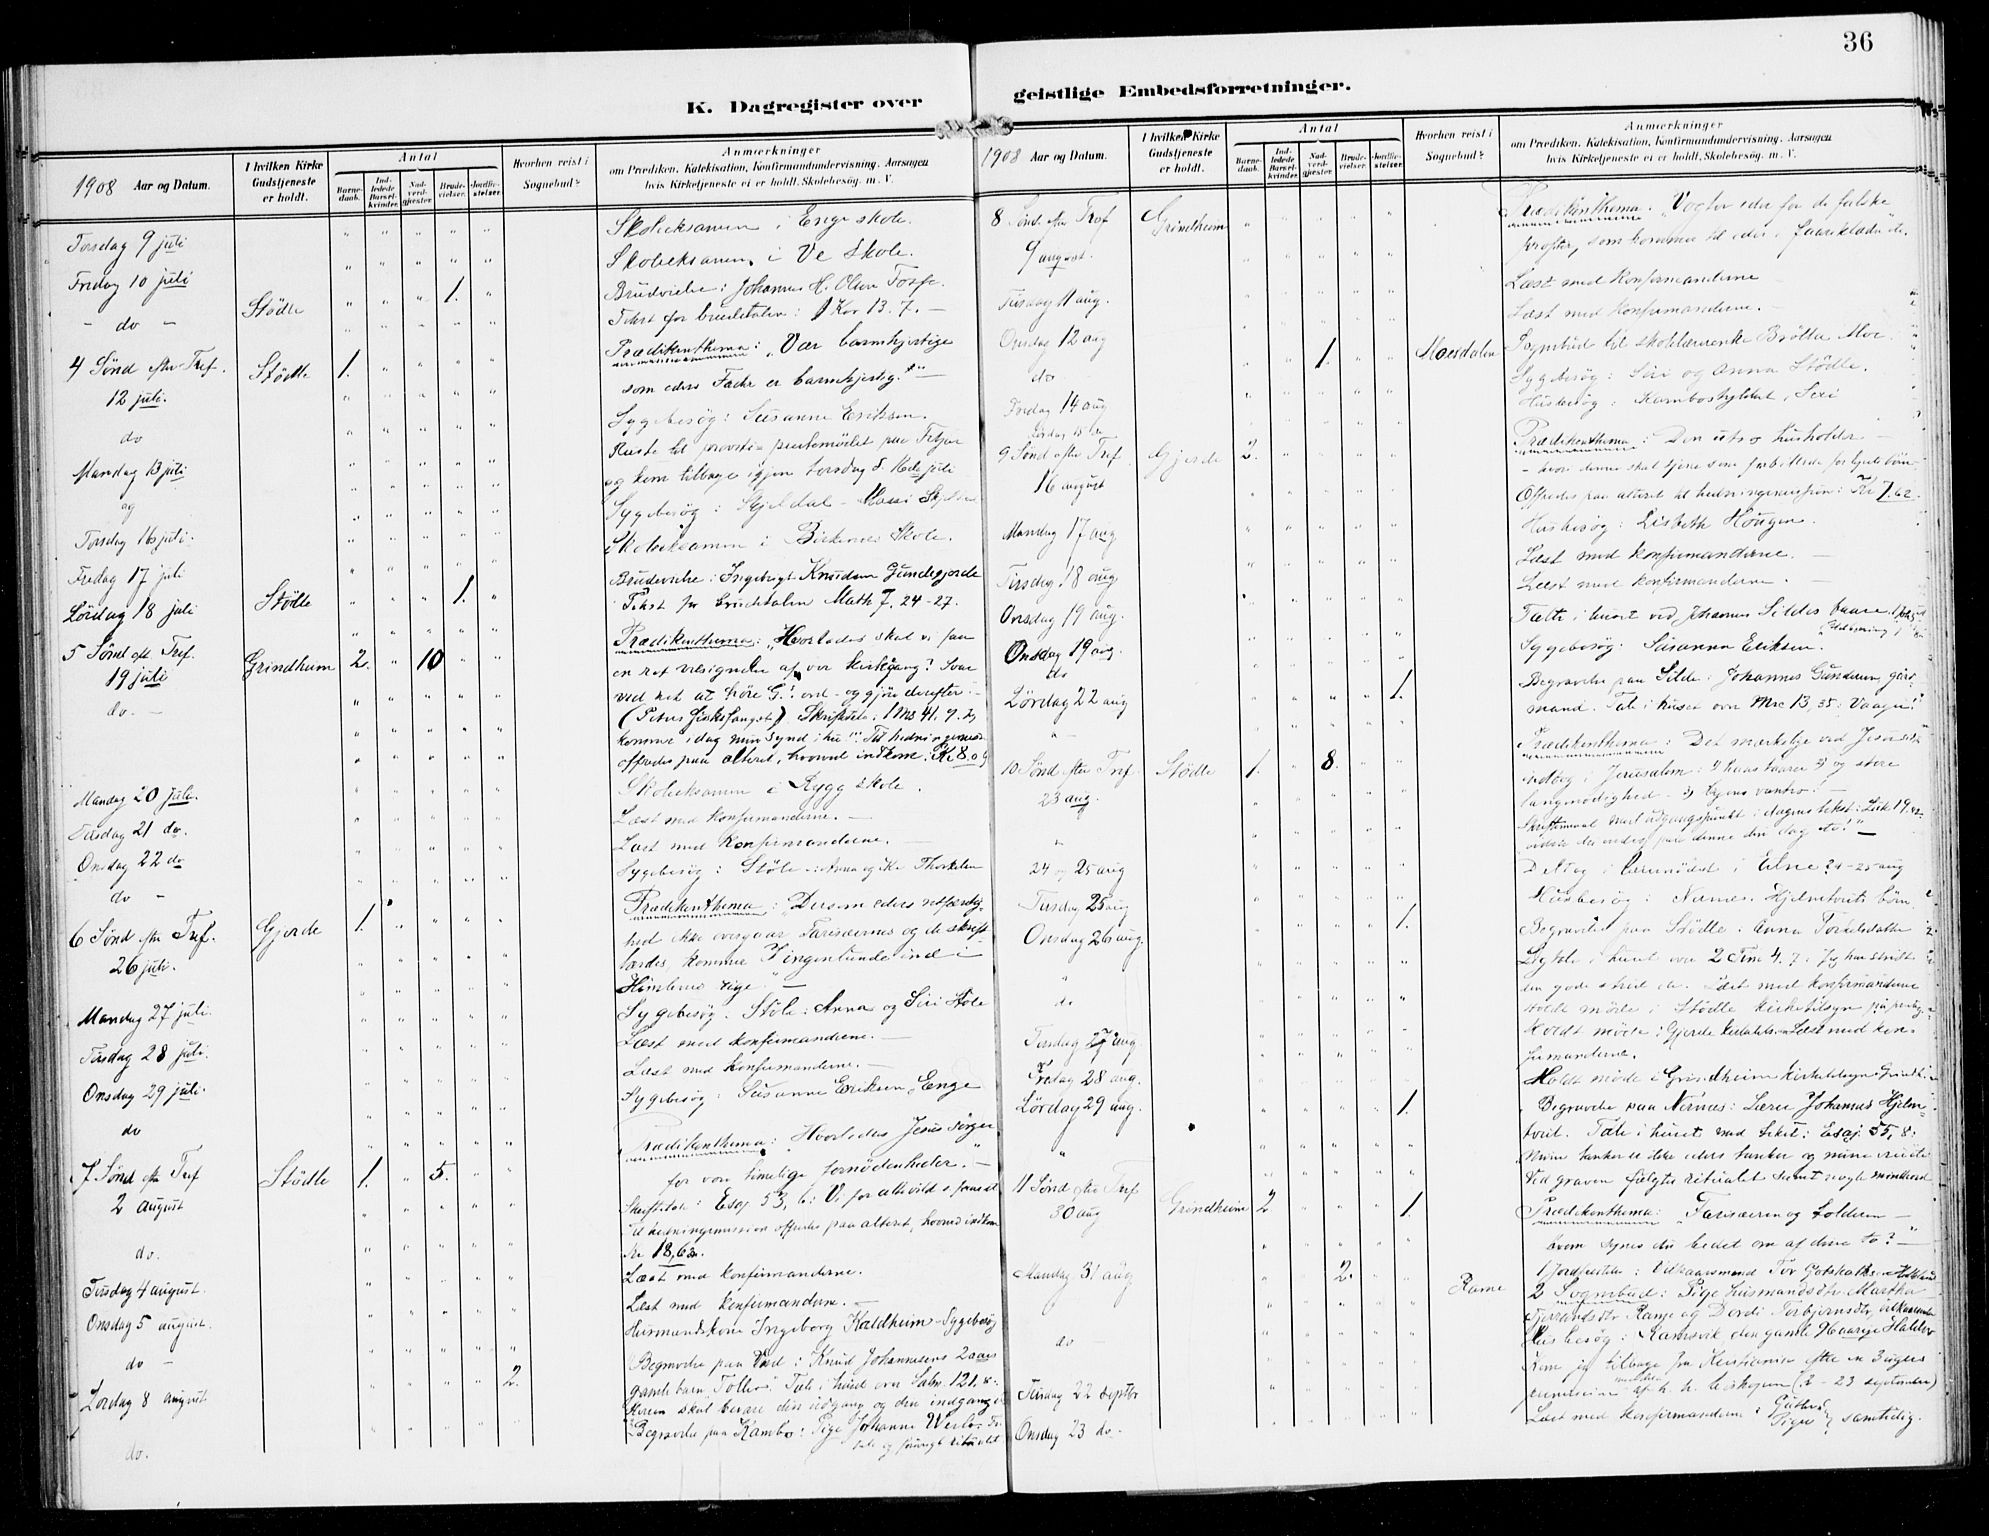 36
K. Dagregister over
1908 Aar og Datum.
I hvilken Kirke Gudstjeneste er holdt.
Antal
Barnedaab.
Indledede Barselkvinder.
Nadverdgjester.
Brudevielser.
Jordfæstelser.
Hvorhen reist i Sognebud?
Anmærkninger
om Prædiken, Katekisation, Konfirmandundervisning, Aarsagen
hvis Kirketjeneste ei er holdt, Skolebesøg m. V.
Torsdag 9 juli Skoleeksamen i Enge skole.
Fredag 10 juli Skoleeksamen i Ve Skole.
- do - Stödle 1. Brudevielse: Johannes H. Olsen
Tekst for brudetalen: 1 Kor 13. 7. -
4 Sönd efter Tref. Stödle 1. Prædikenthema: "Vær barmhjertige
12 juli. som eders Fader er barmhjertig." -
do Sygebesög: Susanne Eriksen.
Mandag 13 juli Reiste til provsti- prestemödet paa
og og kom tilbage igjen torsdag d. 16de juli
Torsdag 16 juli. Sygebesög: Skjeldal -
Fredag 17 juli Skoleeksamen i Birkenes Skole.
Lördag 18 juli Stödle 1. Brudevielse: Ingebrigt Knudsen Gundegjerde
Tekst for brudetalen Math 7. 24-27.
5 Sönd eft Tref. Grindheim 2. 10 Prædikenthema: "Hvorledes skal vi faa
19 juli en ret velsignelse af vor kirkegang? Svar
do. - ved ret at höre G.s ord - og gjöre derefter -
(Peters fiskefangst). Skriftetale: 1 Ms 41. 9. Jeg
kommer idag min synd ihu". Til hedningemis
offredes paa alteret, hvorved indkom: Kr 8.
Mandag 20 juli. Skoleeksamen i Rygg skole.
Tirsdag 21 do. Læst med konfirmanderne. -
Onsdag 22 do Læst med konfirmanderne. -
do - Sygebesög: Störle: Anna
6 Sönd efter Tref. Gjerde 1. Prædikenthema: "Dersom eders retfærdig-
26 juli. hed ikke overgaar Farisæernes og de skrift-
lærdes, komme I ingenlunde ind i
Himlenes rige". -
Mandag 27 juli. Sygebesög: Störle: Anna og Siri Störle
Tirsdag 28 juli. Læst med konfirmanderne. -
Onsdag 29 juli. Læst med konfirmanderne. -
do Sygebesög: Susanne Eriksen, Enge
7 Sönd efter Tref Stödle 1. 5. Prædikenthema: Hvorledes Jesus sörger
2 august for vore timelige fornödenheder. -
do. Skriftetale: Esaj 53, 6: Vi for alle vild
Til hedningemission offredes paa alteret, hvorved indkom
Kr 18,63.
Tirsdag 4 august. Læst med konfirmanderne.
Onsdag 5 august. Læst med konfirmanderne. -
do - Husmandskone Ingeborg Kaldheim - Sygebesög
Lördag 8 august 2. Begravelse paa : Knud Johannesens 2 aars
gamle barn. Tale i huset over Salm. 121, 8:
Herren skal bevare din udgang og din indgang
do. Begravelse paa Kambe: Pige Johanne
geistlige Embedsforretninger.
1908 Aar og Datum.
I hvilken Kirke Gudstjeneste er holdt.
Antal
Barnedaab.
Indledede Barselkvinder.
Nadverdgjester.
Brudevielser.
Jordfæstelser.
Hvorhen reist i Sognebud?
Anmærkninger
om Prædiken, Katekisation, Konfirmandundervisning, Aarsagen
hvis Kirketjeneste ei er holdt, Skolebesøg m. V.
8. Sönd. efter Tref Grindheim Prædikenthema. "Vogter eder for de falske
9 august. profeter, som kommer til eder i faareklæder
Tirsdag 11 aug. Læst med konfirmanderne
Onsdag 12 aug Læst med konfirmanderne
do 1. Moesdalen Sognebud til skolelærerenke
Fredag 14 aug Sygebesög: Siri og Anna Störle.
Lördag 15 de Husbesög:
9 Sönd efter Tref. Gjerde 3. Prædikenthema: Den utro husholder -
16 august
Offredes paa alteret til hedningemission: Kr 7.62.
Mandag 17 aug Husbesög: Lisbeth Hougen.
Tirsdag 18 aug Læst med konfirmanderne. -
Onsdag 19 aug. Læst med konfirmanderne. -
Onsdag 19 aug. Talte i huset ved Johannes Sildes baare
do Sygebesög: Susanna Eriksen.
Lördag 22 aug 1. Begravelse paa Silde: Johannes Gundersen, gaard-
mand. Tale i huset over Mrc 13, 35: Vaager!
10 Sönd efter Tref. Stödle 1. 8. Prædikenthema: Det mærkelige ved Jesu sidste
23 aug. indtog i Jerusalem: 1) Hans taarer 2) og store
langmodighed - 3) byens vantro. -
Skriftemaal med udgangspunkt i dagens tekst: Luk 19.42
vidste du endog paa denne din dag etc!" -
24 og 25 aug Deltog i læremödet i Ölne 24-25 aug
Tirsdag 25 aug Husbesög: Nernes. Hjelmtveits börn
Onsdag 26 aug. 1. Begravelse paa Stödle: Anna Torkelsdatter
Ligtale i huset over 2 Tim 4. 7: Jeg har stridt
do den gode strid etc. Læst med konfirmanderne
Holdt möde i Stödle kirketilsyn
Torsdag 27 aug Holdt möde i Gjerde kirketilsyn. Læst med kon-
firmanderne.
Fredag 28 aug. Holdt möde i Grindheim kirketilsyn
Lördag 29 aug. 1. Begravelse paa Nernes: Lærer Johannes Hjelm-
tveit. Tale i huset med tekst: Esaj. 55, 8:
"Mine tanker er ikke eders tanker og mine veie
Ved graven fulgtes ritualet samt nogle mindeord
11 Sönd efter Tref Grindheim 2 1. Prædikenthema: "Farisæeren og tolderen -
30 aug hvem synes du bedst om af disse to? -"
1 Jordfæstelse:
Mandag 31 aug 2. Rame 2 Sognebud: Pige husmandsdtr. Martha
Rame og Dordi Torbjörnsdtr.
do - Husbesög: Ramsvik den gamle
Tirsdag 22 septbr Kom jeg tilbage fra Kristiania efter en 3 ugers
permission meddelt af h. h. biskopen (2 - 23 september)
Onsdag 23 do. Læst med konfirmanderne: Gutter og Piger samtidig.